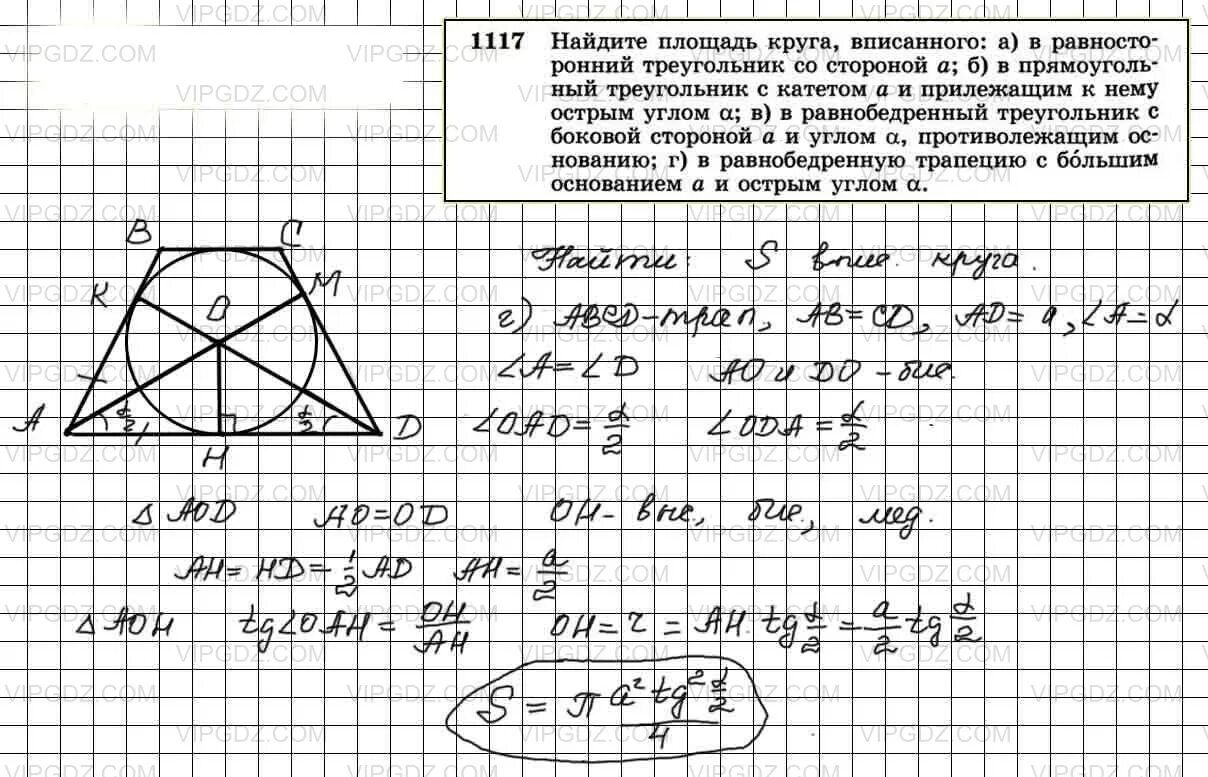 1117 Найдите площадь круга, вписанного: а) в равносто-
ронний треугольник со стороной a; б) в прямоуголь-
ный треугольник с катетом a и прилежащим к нему
острым углом α; в) в равнобедренный треугольник с
боковой стороной a и углом α, противолежащим ос-
нованию; г) в равнобедренную трапецию с бо́льшим
основанием a и острым углом α.
Найти: S впис. круга.
г) ABCD-трап, AB=CD, AD=a, ∠A=α
∠A=∠D AO и DO - бис.
∠OAD=α/2 ∠ODA=α/2
B C
K M
O
A α/2 α/2 D
H
△ AOD AO=OD OH- выс., бис., мед.
AH=HD=1/2 AD AH=a/2
△ AOH tg∠OAH=OH/AH OH=r=AH·tg α/2=a/2 tg α/2
S=π a² tg² α/2 / 4
VIPGDZ.COM